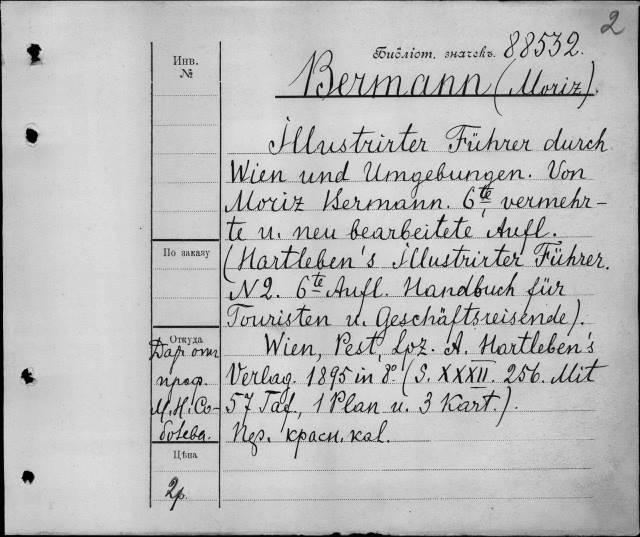 2
Библіот. значекъ. 88532.
Инв.
№
Bermann (Moriz).
Illustrirter Führer durch
Wien und Umgebungen. Von
Moriz Bermann. 6te, vermehr-
te u. neu bearbeitete Aufl.
(Hartleben's illustrirter Führer.
N2. 6te Aufl. Handbuch für
Touristen u. Geschäftsreisende).
По заказу
Wien, Pest, Lpz. A. Hartleben's
Verlag. 1895 in 8° (S. XXXII. 256. Mit
57 Taf., 1 Plan u. 3 Kart.).
красн. кал.
Откуда
Дар от
проф.
Цѣна
2р.